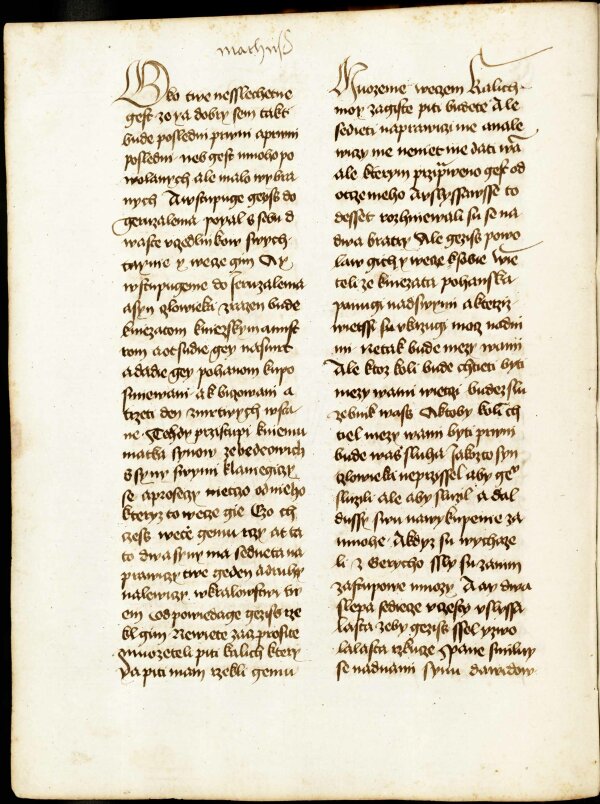 mathuſs
Oko twe nesslechetne
gest zo ya dobry sem takt
bude posledni prwni a prwni
posledni neb gest mnoho po
wolanych ale malo wybra
nych A wstupuge gezis do
geruzalema poyal s sebu d
waste vczedlnikow swych
taynie y wece gim Ay
wstupugeme do Jeruzalema
a syn czlowieka zrazen bude
kniezatom knieżskym a mist
rom a otsudie gey na smrt
a dadie gey pohanom ku po
smiewani a k biczowani a
trzeti den z mrtwych wsta
ne Tehdy przistupi k niemu
matka synow zebedeowich
s syny swymi klaniegiczi
se a prosieczy nieczo od nieho
kteryz to wecze gie Czo ch
czess wece gemu rczy at ta
to dwa syny ma sedneta na
prawiczy twe geden a druhy
na lewiczy w kralowstwi tw
em Odpowiedage gezis rze
kl gim Newiete zacz prosite
mozeteli piti kalich ktery
ya piti mam rzekli gemu
Muozeme weczem Kalich
moy zagiste piti budete Ale
sedieti na prawiczi me a na le
wiczy me nemet me dati wa
ale kterym przipraweno gest od
otcze meho A vslyssawsse to
desset rozhniewali su se na
dwa bratry Ale gezis powo
law gich y wecze k sobie Wie
teli ze kniezata pohanska
panugi nad swymi a kterzi
wietssi su vkrzugi mocz nad ni
mi Ne tak bude mezy wami
Ale ktoz koli bude chtieti byti
mezy wami wietczi budez slu
zebnik wass A ktoby koli ch
tiel mezy wami byti prwni
bude was sluha Jakozto syn
czlowieka neprzissel aby ge
slurzili ale aby sluzil a dal
dussy swu na wykupenie za
mnohe A kdyz su wychaze
li z Gerycho ssly su za nim
zastupowe mnozy A ay dwa
slepa sedicze v czesty vslyssa
lasta zeby gezis ssel y zwo
lalasta rzkucze Pane smiluy
se nad nami synu dawidow